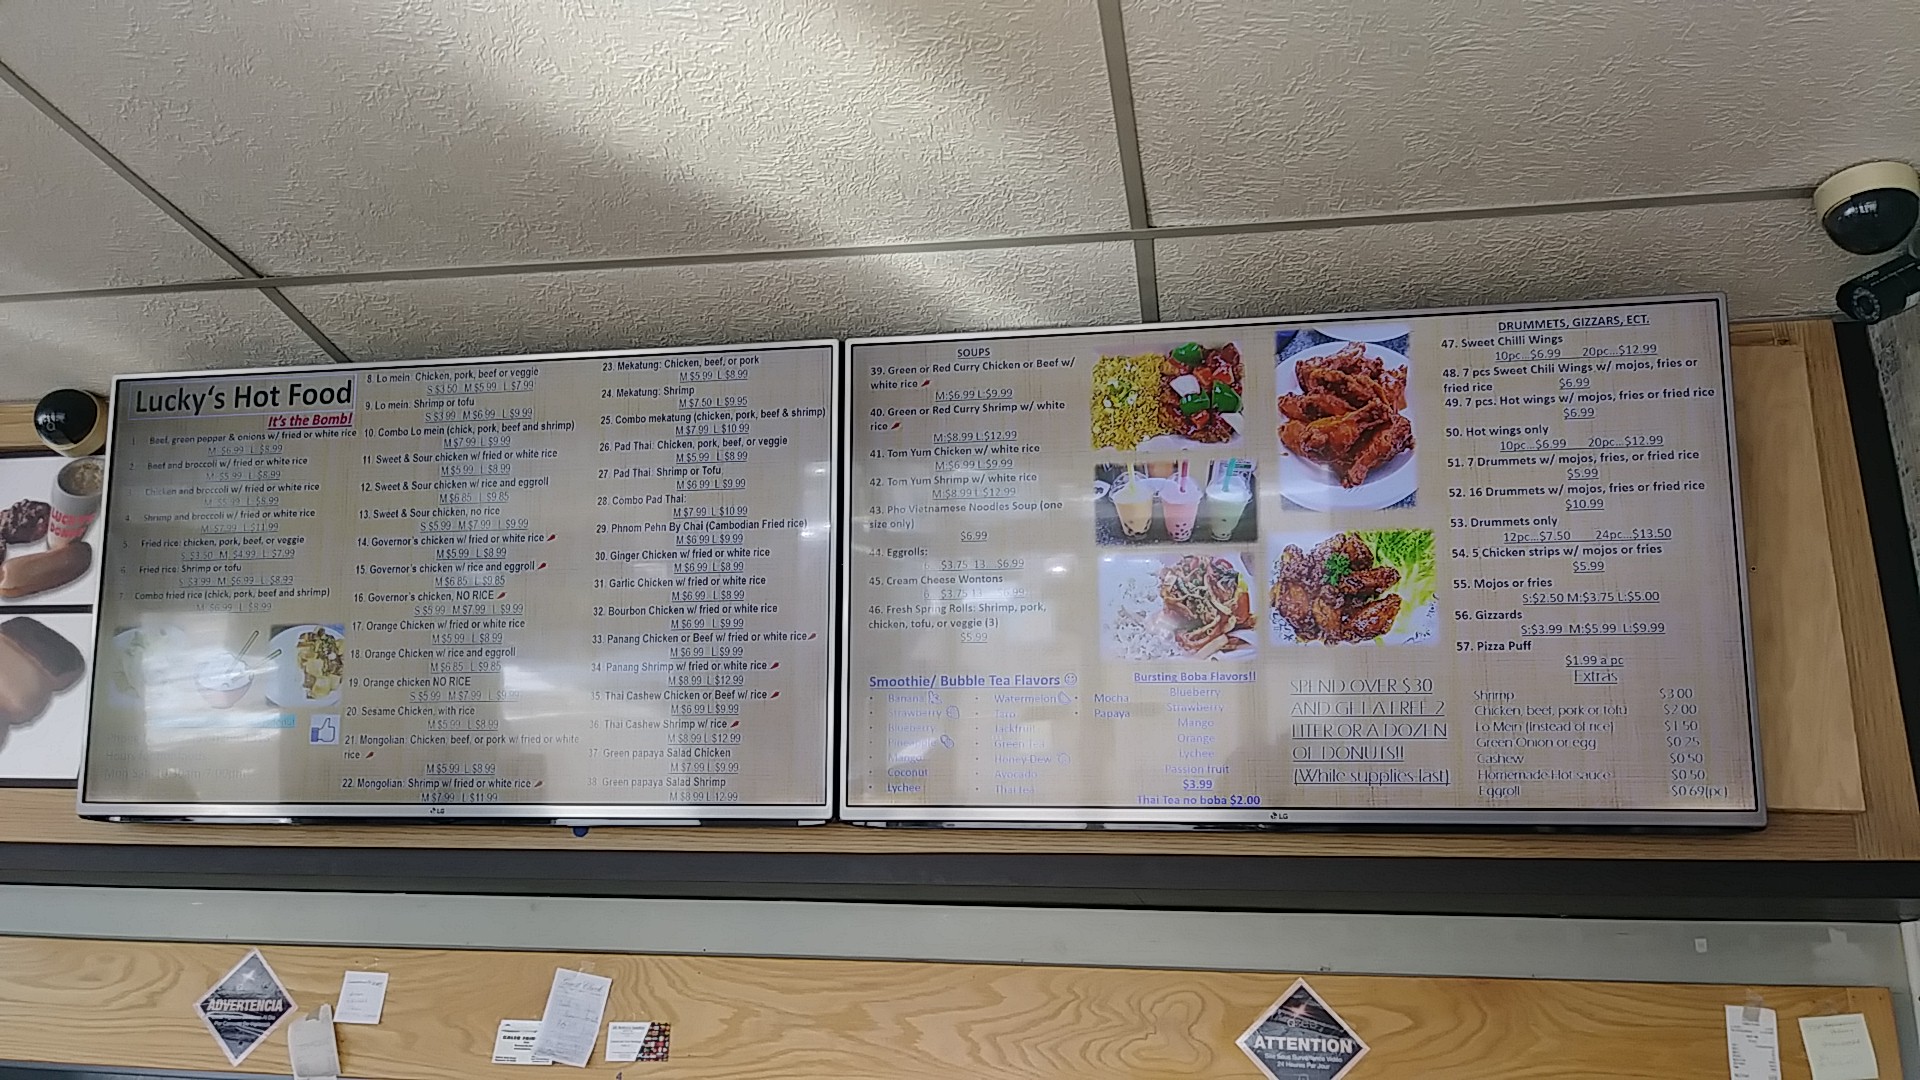 Lucky's Hot Food
It's the Bomb!
1. Beef, green pepper & onions w/ fried or white rice
M: $6.99 L: $8.99
2. Beef and broccoli w/ fried or white rice
M: $5.99 L: $8.99
3. Chicken and broccoli w/ fried or white rice
M: $5.99 L: $8.99
4. Shrimp and broccoli w/ fried or white rice
M: $7.99 L: $11.99
5. Fried rice: chicken, pork, beef, or veggie
S: $3.50 M: $4.99 L: $7.99
6. Fried rice: Shrimp or tofu
S: $3.99 M: $6.99 L: $8.99
7. Combo fried rice (chick, pork, beef and shrimp)
M: $6.99 L: $8.99
8. Lo mein: Chicken, pork, beef or veggie
S $3.50 M $5.99 L $7.99
9. Lo mein: Shrimp or tofu
S $3.99 M $6.99 L $9.99
10. Combo Lo mein (chick, pork, beef and shrimp)
M $7.99 L $9.99
11. Sweet & Sour chicken w/ fried or white rice
M $5.99 L $8.99
12. Sweet & Sour chicken w/ rice and eggroll
M $6.85 L $9.85
13. Sweet & Sour chicken, no rice
S $5.99 M $7.99 L $9.99
14. Governor's chicken w/ fried or white rice
M $5.99 L $8.99
15. Governor's chicken w/ rice and eggroll
M $6.85 L $9.85
16. Governor's chicken, NO RICE
S $5.99 M $7.99 L $9.99
17. Orange Chicken w/ fried or white rice
M $5.99 L $8.99
18. Orange Chicken w/ rice and eggroll
M $6.85 L $9.85
19. Orange chicken NO RICE
S $5.99 M $7.99 L $9.99
20. Sesame Chicken, with rice
M $5.99 L $8.99
21. Mongolian: Chicken, beef, or pork w/ fried or white
rice
M $5.99 L $8.99
22. Mongolian: Shrimp w/ fried or white rice
M $7.99 L $11.99
23. Mekatung: Chicken, beef, or pork
M $5.99 L $8.99
24. Mekatung: Shrimp
M $7.50 L $9.95
25. Combo mekatung (chicken, pork, beef & shrimp)
M $7.99 L $10.99
26. Pad Thai: Chicken, pork, beef, or veggie
M $5.99 L $8.99
27. Pad Thai: Shrimp or Tofu
M $6.99 L $9.99
28. Combo Pad Thai:
M $7.99 L $10.99
29. Phnom Pehn By Chai (Cambodian Fried rice)
M $6.99 L $9.99
30. Ginger Chicken w/ fried or white rice
M $6.99 L $8.99
31. Garlic Chicken w/ fried or white rice
M $6.99 L $8.99
32. Bourbon Chicken w/ fried or white rice
M $6.99 L $9.99
33. Panang Chicken or Beef w/ fried or white rice
M $6.99 L $9.99
34. Panang Shrimp w/ fried or white rice
M $8.99 L $12.99
35. Thai Cashew Chicken or Beef w/ rice
M $6.99 L $9.99
36. Thai Cashew Shrimp w/ rice
M $8.99 L $12.99
37. Green papaya Salad Chicken
M $7.99 L $9.99
38. Green papaya Salad Shrimp
M $8.99 L 12.99
LG
SOUPS
39. Green or Red Curry Chicken or Beef w/
white rice
M:$6.99 L:$9.99
40. Green or Red Curry Shrimp w/ white
rice
M:$8.99 L:$12.99
41. Tom Yum Chicken w/ white rice
M:$6.99 L:$9.99
42. Tom Yum Shrimp w/ white rice
M:$8.99 L:$12.99
43. Pho Vietnamese Noodles Soup (one
size only)
$6.99
44. Eggrolls:
6...$3.75 13...$6.99
45. Cream Cheese Wontons
6...$3.75 13...$6.99
46. Fresh Spring Rolls: Shrimp, pork,
chicken, tofu, or veggie (3)
$5.99
Smoothie/ Bubble Tea Flavors
Banana
Strawberry
Blueberry
Pineapple
Mango
Coconut
Lychee
Watermelon
Taro
Jackfruit
Green Tea
Honey Dew
Avocado
Thai tea
Mocha
Papaya
Bursting Boba Flavors!!
Blueberry
Strawberry
Mango
Orange
Lychee
Passion fruit
$3.99
Thai Tea no boba $2.00
SPEND OVER $30
AND GET A FREE 2
LITER OR A DOZEN
OF DONUTS!!
(While supplies last)
DRUMMETS, GIZZARS, ECT.
47. Sweet Chilli Wings
10pc...$6.99 20pc...$12.99
48. 7 pcs Sweet Chili Wings w/ mojos, fries or
fried rice $6.99
49. 7 pcs. Hot wings w/ mojos, fries or fried rice
$6.99
50. Hot wings only
10pc...$6.99 20pc...$12.99
51. 7 Drummets w/ mojos, fries, or fried rice
$5.99
52. 16 Drummets w/ mojos, fries or fried rice
$10.99
53. Drummets only
12pc...$7.50 24pc...$13.50
54. 5 Chicken strips w/ mojos or fries
$5.99
55. Mojos or fries
S:$2.50 M:$3.75 L:$5.00
56. Gizzards
S:$3.99 M:$5.99 L:$9.99
57. Pizza Puff
$1.99 a pc
Extras
Shrimp $3.00
Chicken, beef, pork or tofu $2.00
Lo Mein (Instead of rice) $1.50
Green Onion or egg $0.25
Cashew $0.50
Homemade Hot sauce $0.50
Eggroll $0.69(pc)
LG
ADVERTENCIA
ATTENTION
24 Heures Par Jour